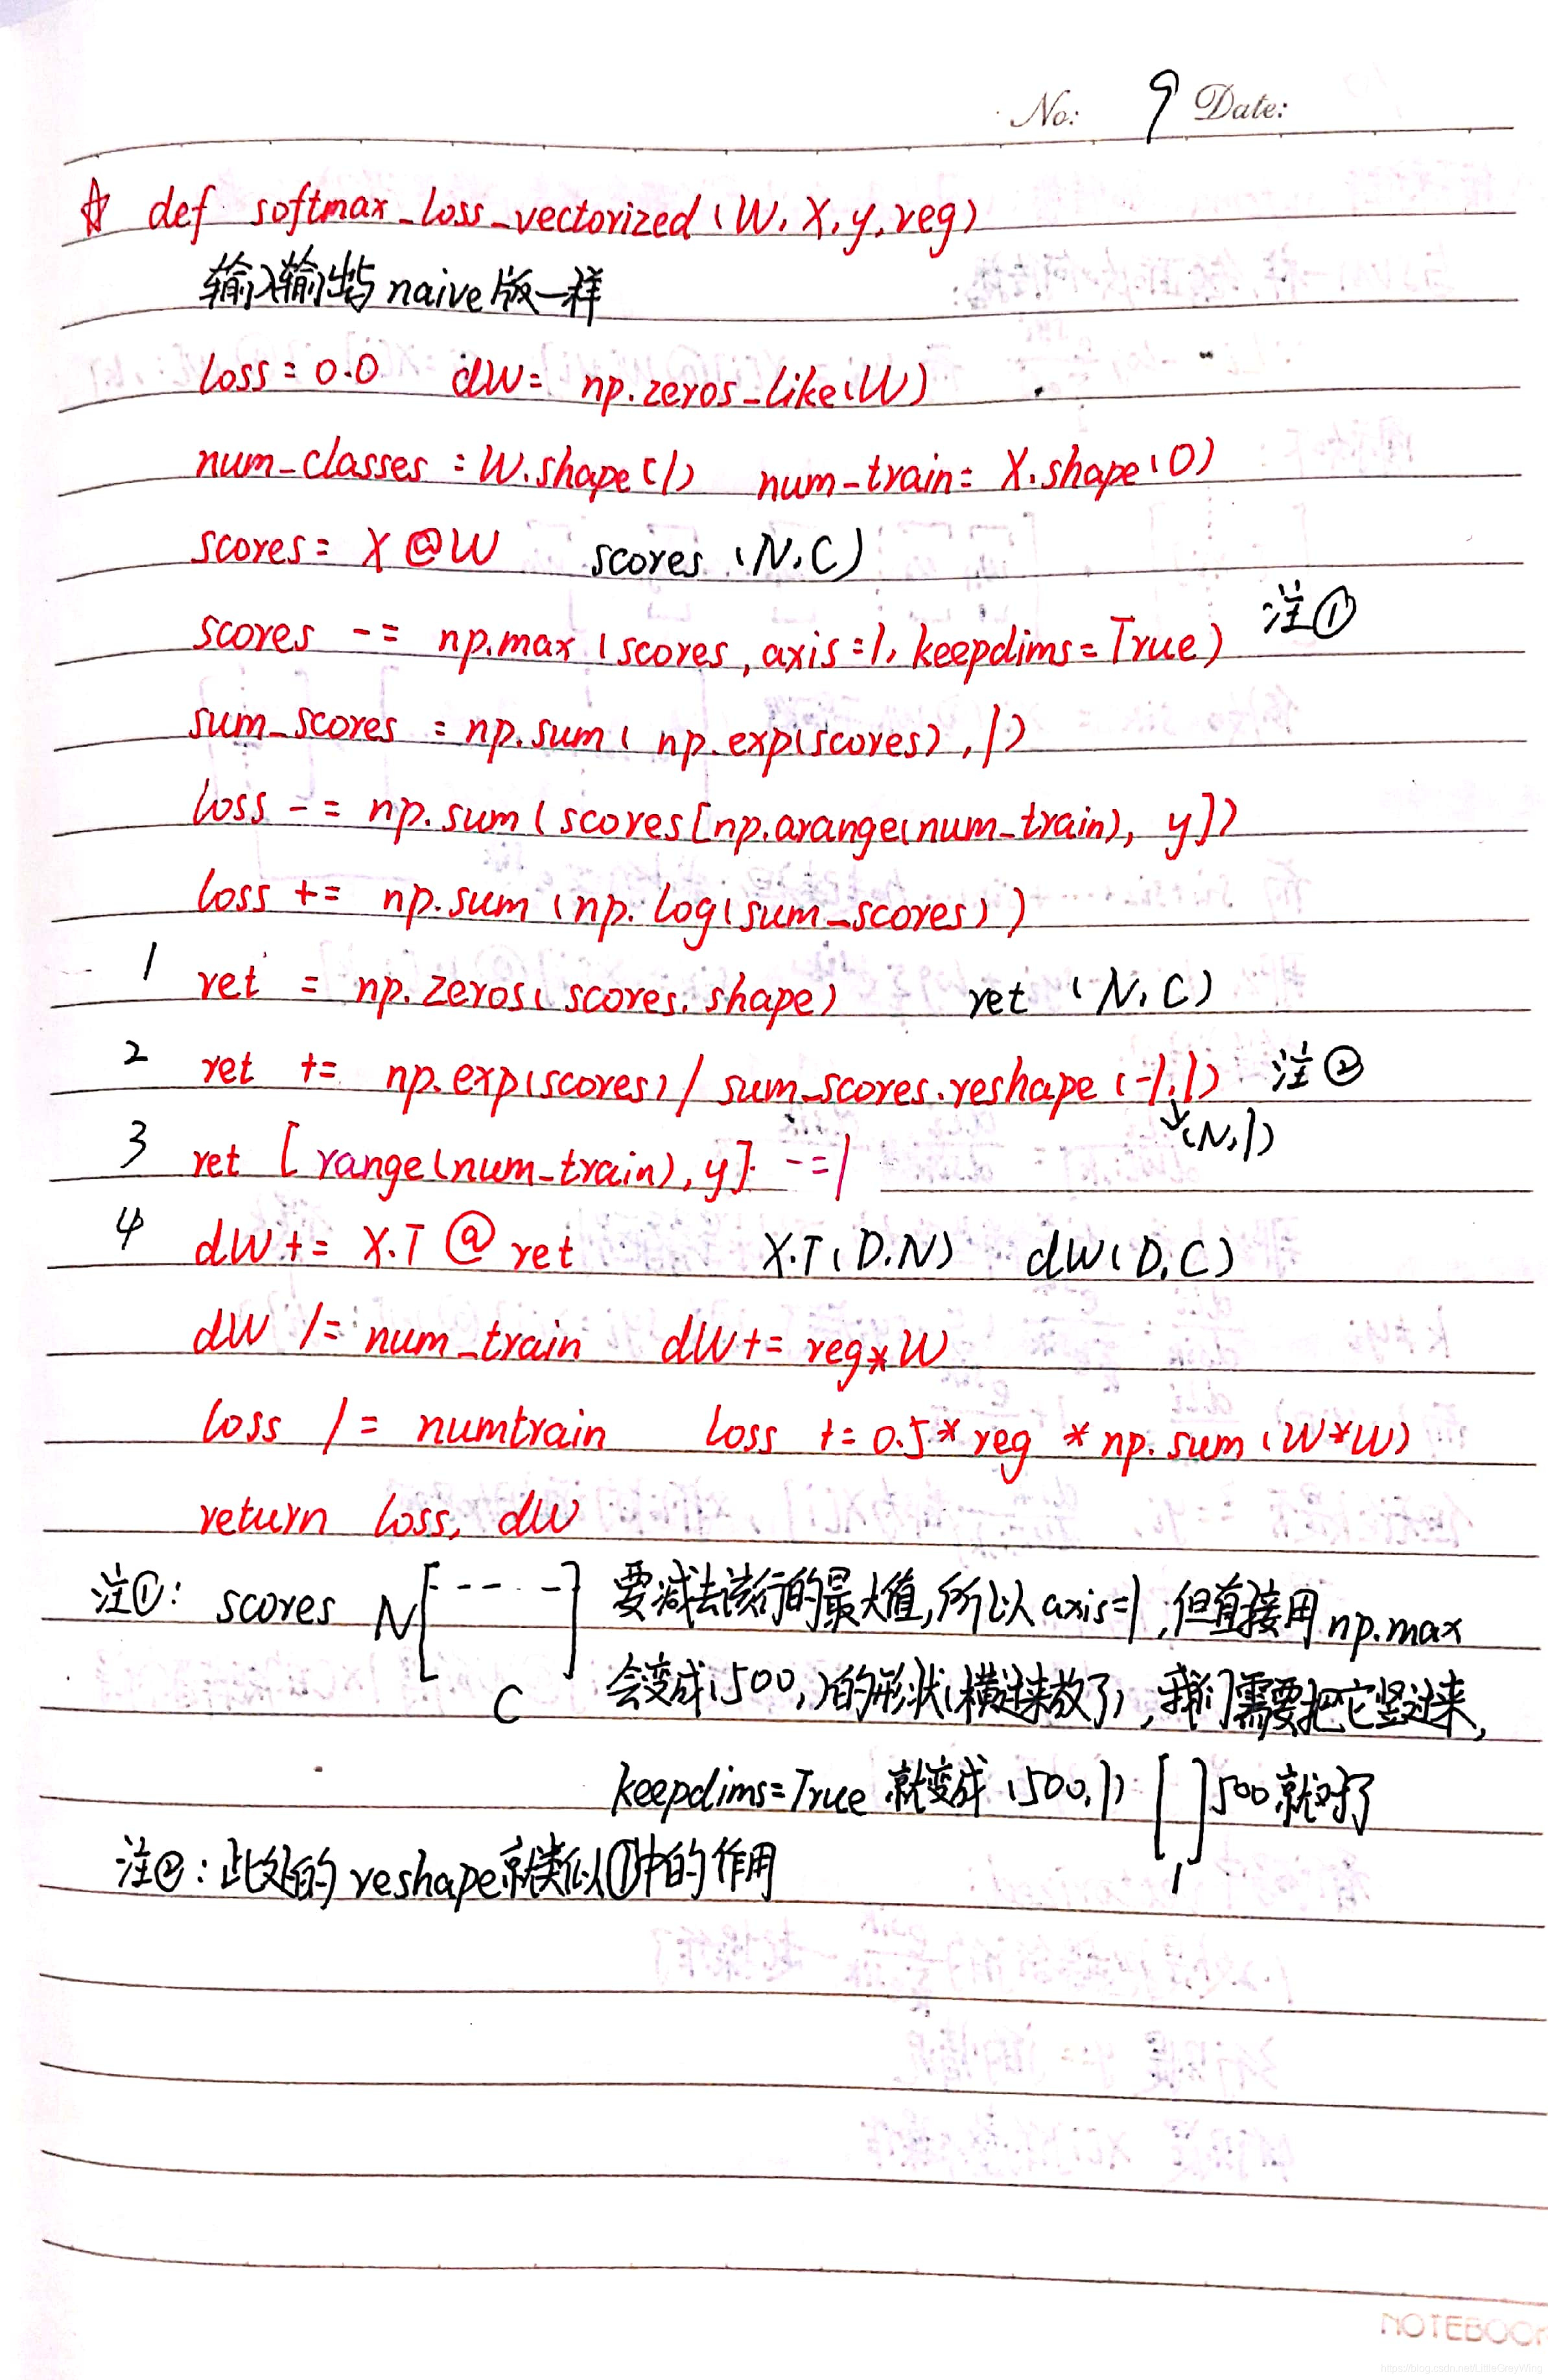 No: 9 Date:
☆ def softmax_loss_vectorized (W, X, y, reg)
输入输出与naive版一样
loss = 0.0 dW = np.zeros_like(W)
num_classes = W.shape(1) num_train = X.shape(0)
scores = X @ W scores (N, C)
scores -= np.max (scores, axis=1, keepdims=True) 注①
sum_scores = np.sum ( np.exp(scores), 1)
loss -= np.sum (scores[np.arange(num_train), y])
loss += np.sum (np.log(sum_scores))
1 ret = np.zeros(scores.shape) ret (N, C)
2 ret += np.exp(scores) / sum_scores.reshape (-1,1) 注②
↓(N,1)
3 ret [range(num_train), y] -=1
4 dW += X.T @ ret X.T(D.N) dW(D,C)
dW /= num_train dW += reg*W
loss /= numtrain loss += 0.5* reg * np.sum (W*W)
return loss, dW
注①: scores N[---- -] 要减去该行的最大值,所以axis=1,但直接用np.max
C 会变成(500,)的形状(横过来放了),我们需要把它竖过来,
keepdims=True 就变成 (500,1) [ ]500就对了
1
注②:此处的reshape就类似①中的作用
NOTEBOOK
https://blog.csdn.net/LittleGreyWing